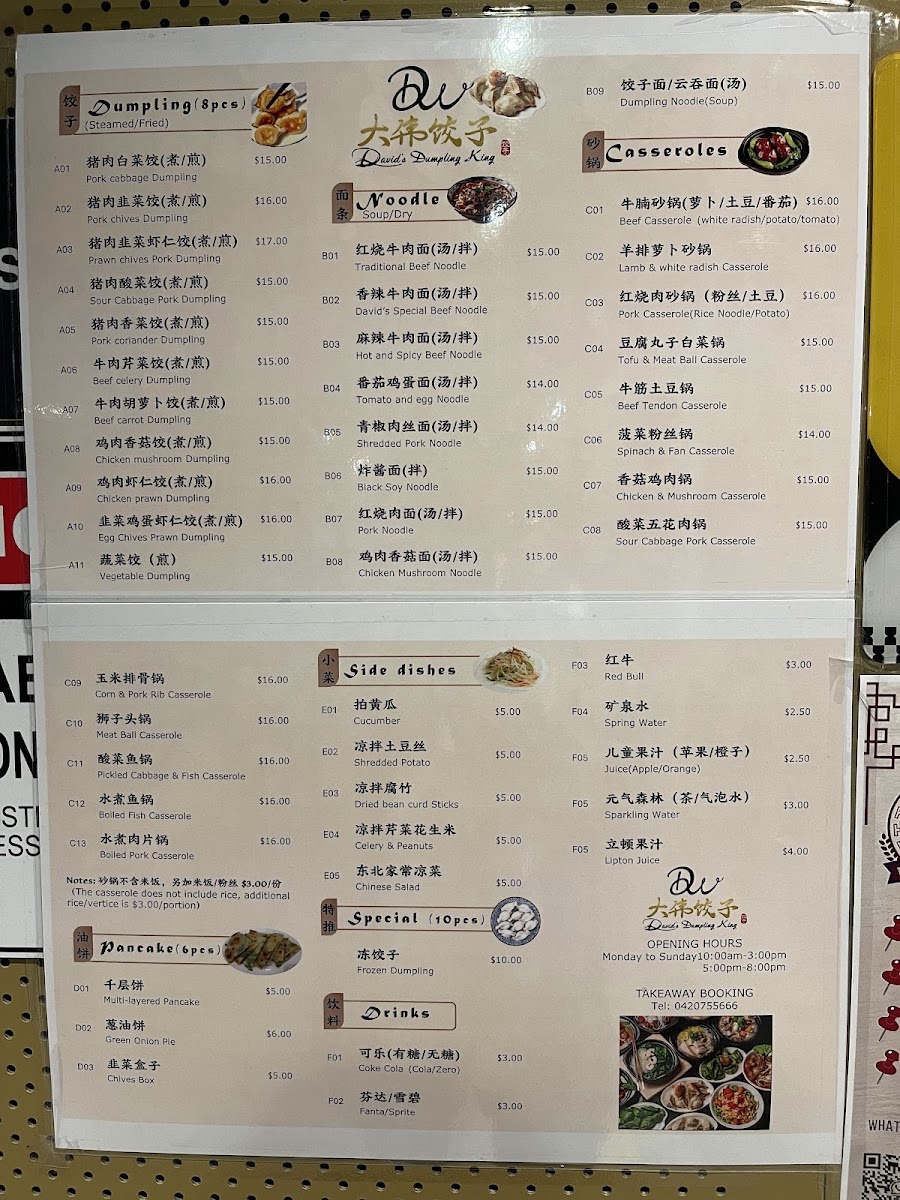 饺子
Dumpling(8pcs)
(Steamed/Fried)
A01 猪肉白菜饺(煮/煎) $15.00
Pork cabbage Dumpling
A02 猪肉韭菜饺(煮/煎) $16.00
Pork chives Dumpling
A03 猪肉韭菜虾仁饺(煮/煎) $17.00
Prawn chives Pork Dumpling
A04 猪肉酸菜饺(煮/煎) $15.00
Sour Cabbage Pork Dumpling
A05 猪肉香菜饺(煮/煎) $15.00
Pork coriander Dumpling
A06 牛肉芹菜饺(煮/煎) $15.00
Beef celery Dumpling
A07 牛肉胡萝卜饺(煮/煎) $15.00
Beef carrot Dumpling
A08 鸡肉香菇饺(煮/煎) $15.00
Chicken mushroom Dumpling
A09 鸡肉虾仁饺(煮/煎) $16.00
Chicken prawn Dumpling
A10 韭菜鸡蛋虾仁饺(煮/煎) $16.00
Egg Chives Prawn Dumpling
A11 蔬菜饺（煎） $15.00
Vegetable Dumpling
DW
大祎饺子
David's Dumpling King
面条
Noodle
Soup/Dry
B01 红烧牛肉面(汤/拌) $15.00
Traditional Beef Noodle
B02 香辣牛肉面(汤/拌) $15.00
David's Special Beef Noodle
B03 麻辣牛肉面(汤/拌) $15.00
Hot and Spicy Beef Noodle
B04 番茄鸡蛋面(汤/拌) $14.00
Tomato and egg Noodle
B05 青椒肉丝面(汤/拌) $14.00
Shredded Pork Noodle
B06 炸酱面(拌) $15.00
Black Soy Noodle
B07 红烧肉面(汤/拌) $15.00
Pork Noodle
B08 鸡肉香菇面(汤/拌) $15.00
Chicken Mushroom Noodle
B09 饺子面/云吞面(汤) $15.00
Dumpling Noodle(Soup)
砂锅
Casseroles
C01 牛腩砂锅(萝卜/土豆/番茄) $16.00
Beef Casserole (white radish/potato/tomato)
C02 羊排萝卜砂锅 $16.00
Lamb & white radish Casserole
C03 红烧肉砂锅（粉丝/土豆） $16.00
Pork Casserole(Rice Noodle/Potato)
C04 豆腐丸子白菜锅 $15.00
Tofu & Meat Ball Casserole
C05 牛筋土豆锅 $15.00
Beef Tendon Casserole
C06 菠菜粉丝锅 $14.00
Spinach & Fan Casserole
C07 香菇鸡肉锅 $15.00
Chicken & Mushroom Casserole
C08 酸菜五花肉锅 $15.00
Sour Cabbage Pork Casserole
C09 玉米排骨锅 $16.00
Corn & Pork Rib Casserole
C10 狮子头锅 $16.00
Meat Ball Casserole
C11 酸菜鱼锅 $16.00
Pickled Cabbage & Fish Casserole
C12 水煮鱼锅 $16.00
Boiled Fish Casserole
C13 水煮肉片锅 $16.00
Boiled Pork Casserole
Notes: 砂锅不含米饭，另加米饭/粉丝 $3.00/份
(The casserole does not include rice, additional
rice/vertice is $3.00/portion)
油饼
Pancake(6pcs)
D01 千层饼 $5.00
Multi-layered Pancake
D02 葱油饼 $6.00
Green Onion Pie
D03 韭菜盒子 $5.00
Chives Box
小菜
Side dishes
E01 拍黄瓜 $5.00
Cucumber
E02 凉拌土豆丝 $5.00
Shredded Potato
E03 凉拌腐竹 $5.00
Dried bean curd Sticks
E04 凉拌芹菜花生米 $5.00
Celery & Peanuts
E05 东北家常凉菜 $5.00
Chinese Salad
特推
Special (10pcs)
冻饺子 $10.00
Frozen Dumpling
饮料
Drinks
F01 可乐(有糖/无糖) $3.00
Coke Cola (Cola/Zero)
F02 芬达/雪碧 $3.00
Fanta/Sprite
F03 红牛 $3.00
Red Bull
F04 矿泉水 $2.50
Spring Water
F05 儿童果汁（苹果/橙子） $2.50
Juice(Apple/Orange)
F05 元气森林（茶/气泡水） $3.00
Sparkling Water
F05 立顿果汁 $4.00
Lipton Juice
DW
大祎饺子
David's Dumpling King
OPENING HOURS
Monday to Sunday10:00am-3:00pm
5:00pm-8:00pm
TAKEAWAY BOOKING
Tel: 0420755666
WHAT